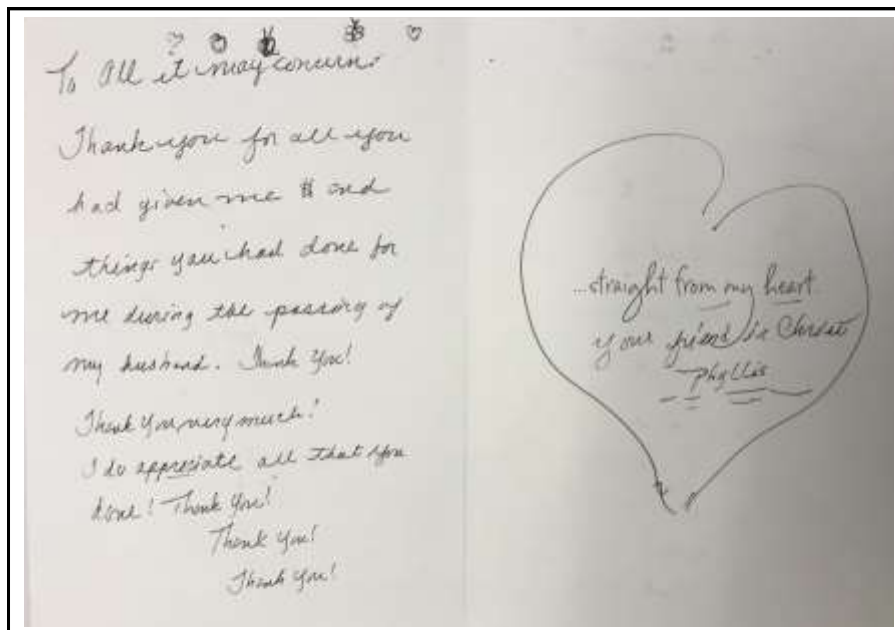 To All it may concern:
Thank you for all you
had given me $ and
things you had done for
me during the passing of
my husband. Thank You!
Thank You very much!
I do appreciate all that you
done! Thank You!
Thank You!
Thank You!
...straight from my heart
your friend in Christ
Phyllis